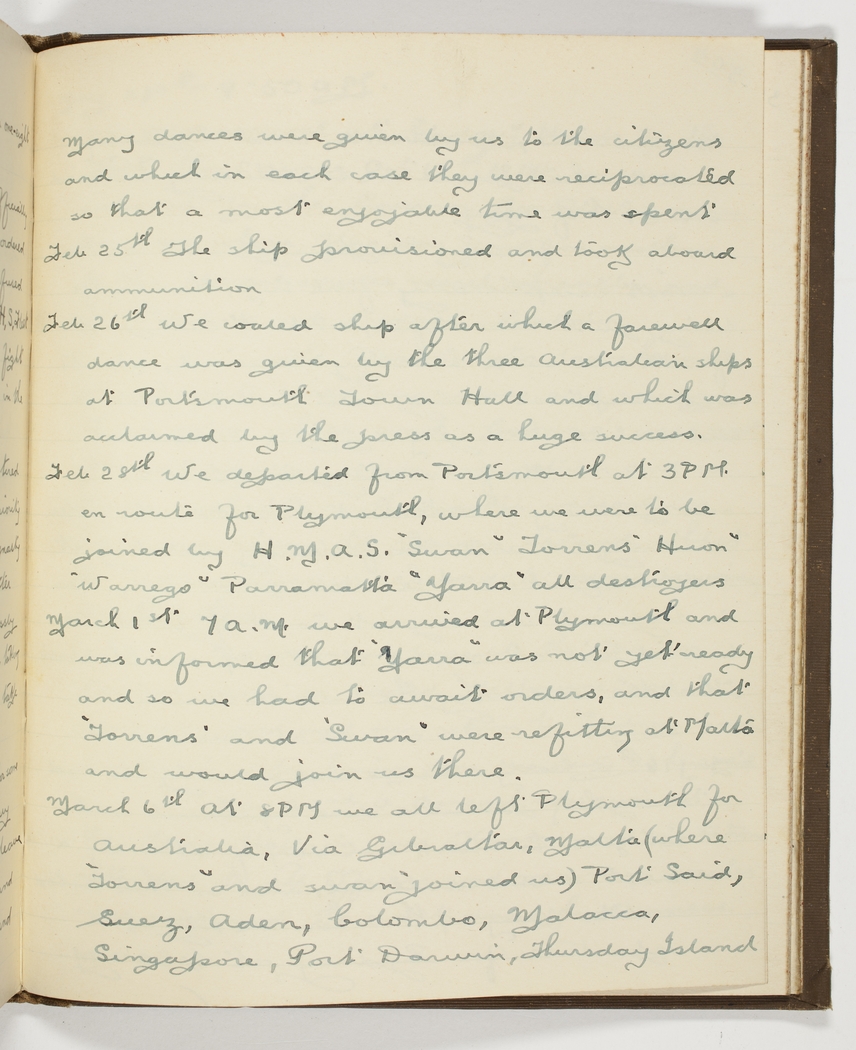 many dances were given by us to the citizens
and which in each case they were reciprocated
so that a most enjoyable time was spent
Feb 25th The ship provisioned and took aboard
ammunition
Feb 26th We coaled ship after which a farewell
dance was given by the three Australian ships
at Portsmouth Town Hall and which was
acclaimed by the press as a huge success.
Feb 28th We departed from Portsmouth at 3PM.
en route for Plymouth, where we were to be
joined by H.M.A.S. "Swan" Torrens" Huon"
"Warrego" Parramatta "Yarra" all destroyers
March 1st 7 A.M. we arrived at Plymouth and
was informed that "Yarra" was not yet ready
and so we had to await orders, and that
"Torrens' and 'Swan" were refitting at Malta
and would join us there.
March 6th At 8PM we all left Plymouth for
Australia, Via Gibraltar, Malta (where
"Torrens" and swan" joined us) Port Said,
Suez, Aden, Colombo, Malacca,
Singapore, Port Darwin, Thursday Island